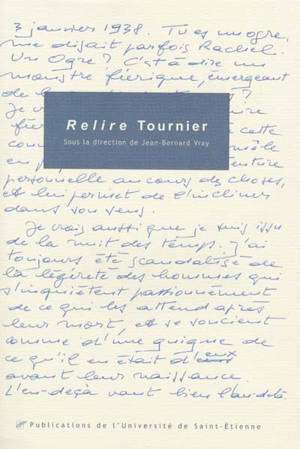 3 janvier 1938. Tu es un ogre,
me disait parfois Rachel.
Un Ogre ? C'est à dire un
monstre féerique, émergeant
de la
Je
cette
Relire Tournier
Sous la direction de Jean-Bernard Vray
personnelle au cours des choses,
et lui permet de l'incliner
dans son sens.
Je crois aussi que je suis issu
de la nuit des temps. J'ai
toujours été scandalisé de
la légèreté des hommes qui
s'inquiètent passionnément
de ce qui les attend après
leur mort, et se soucient
comme d'une guigne de
ce qu'il en était d'eux
avant leur naissance.
L'en-deçà vaut bien l'au-delà.
Publications de l'Université de Saint-Étienne